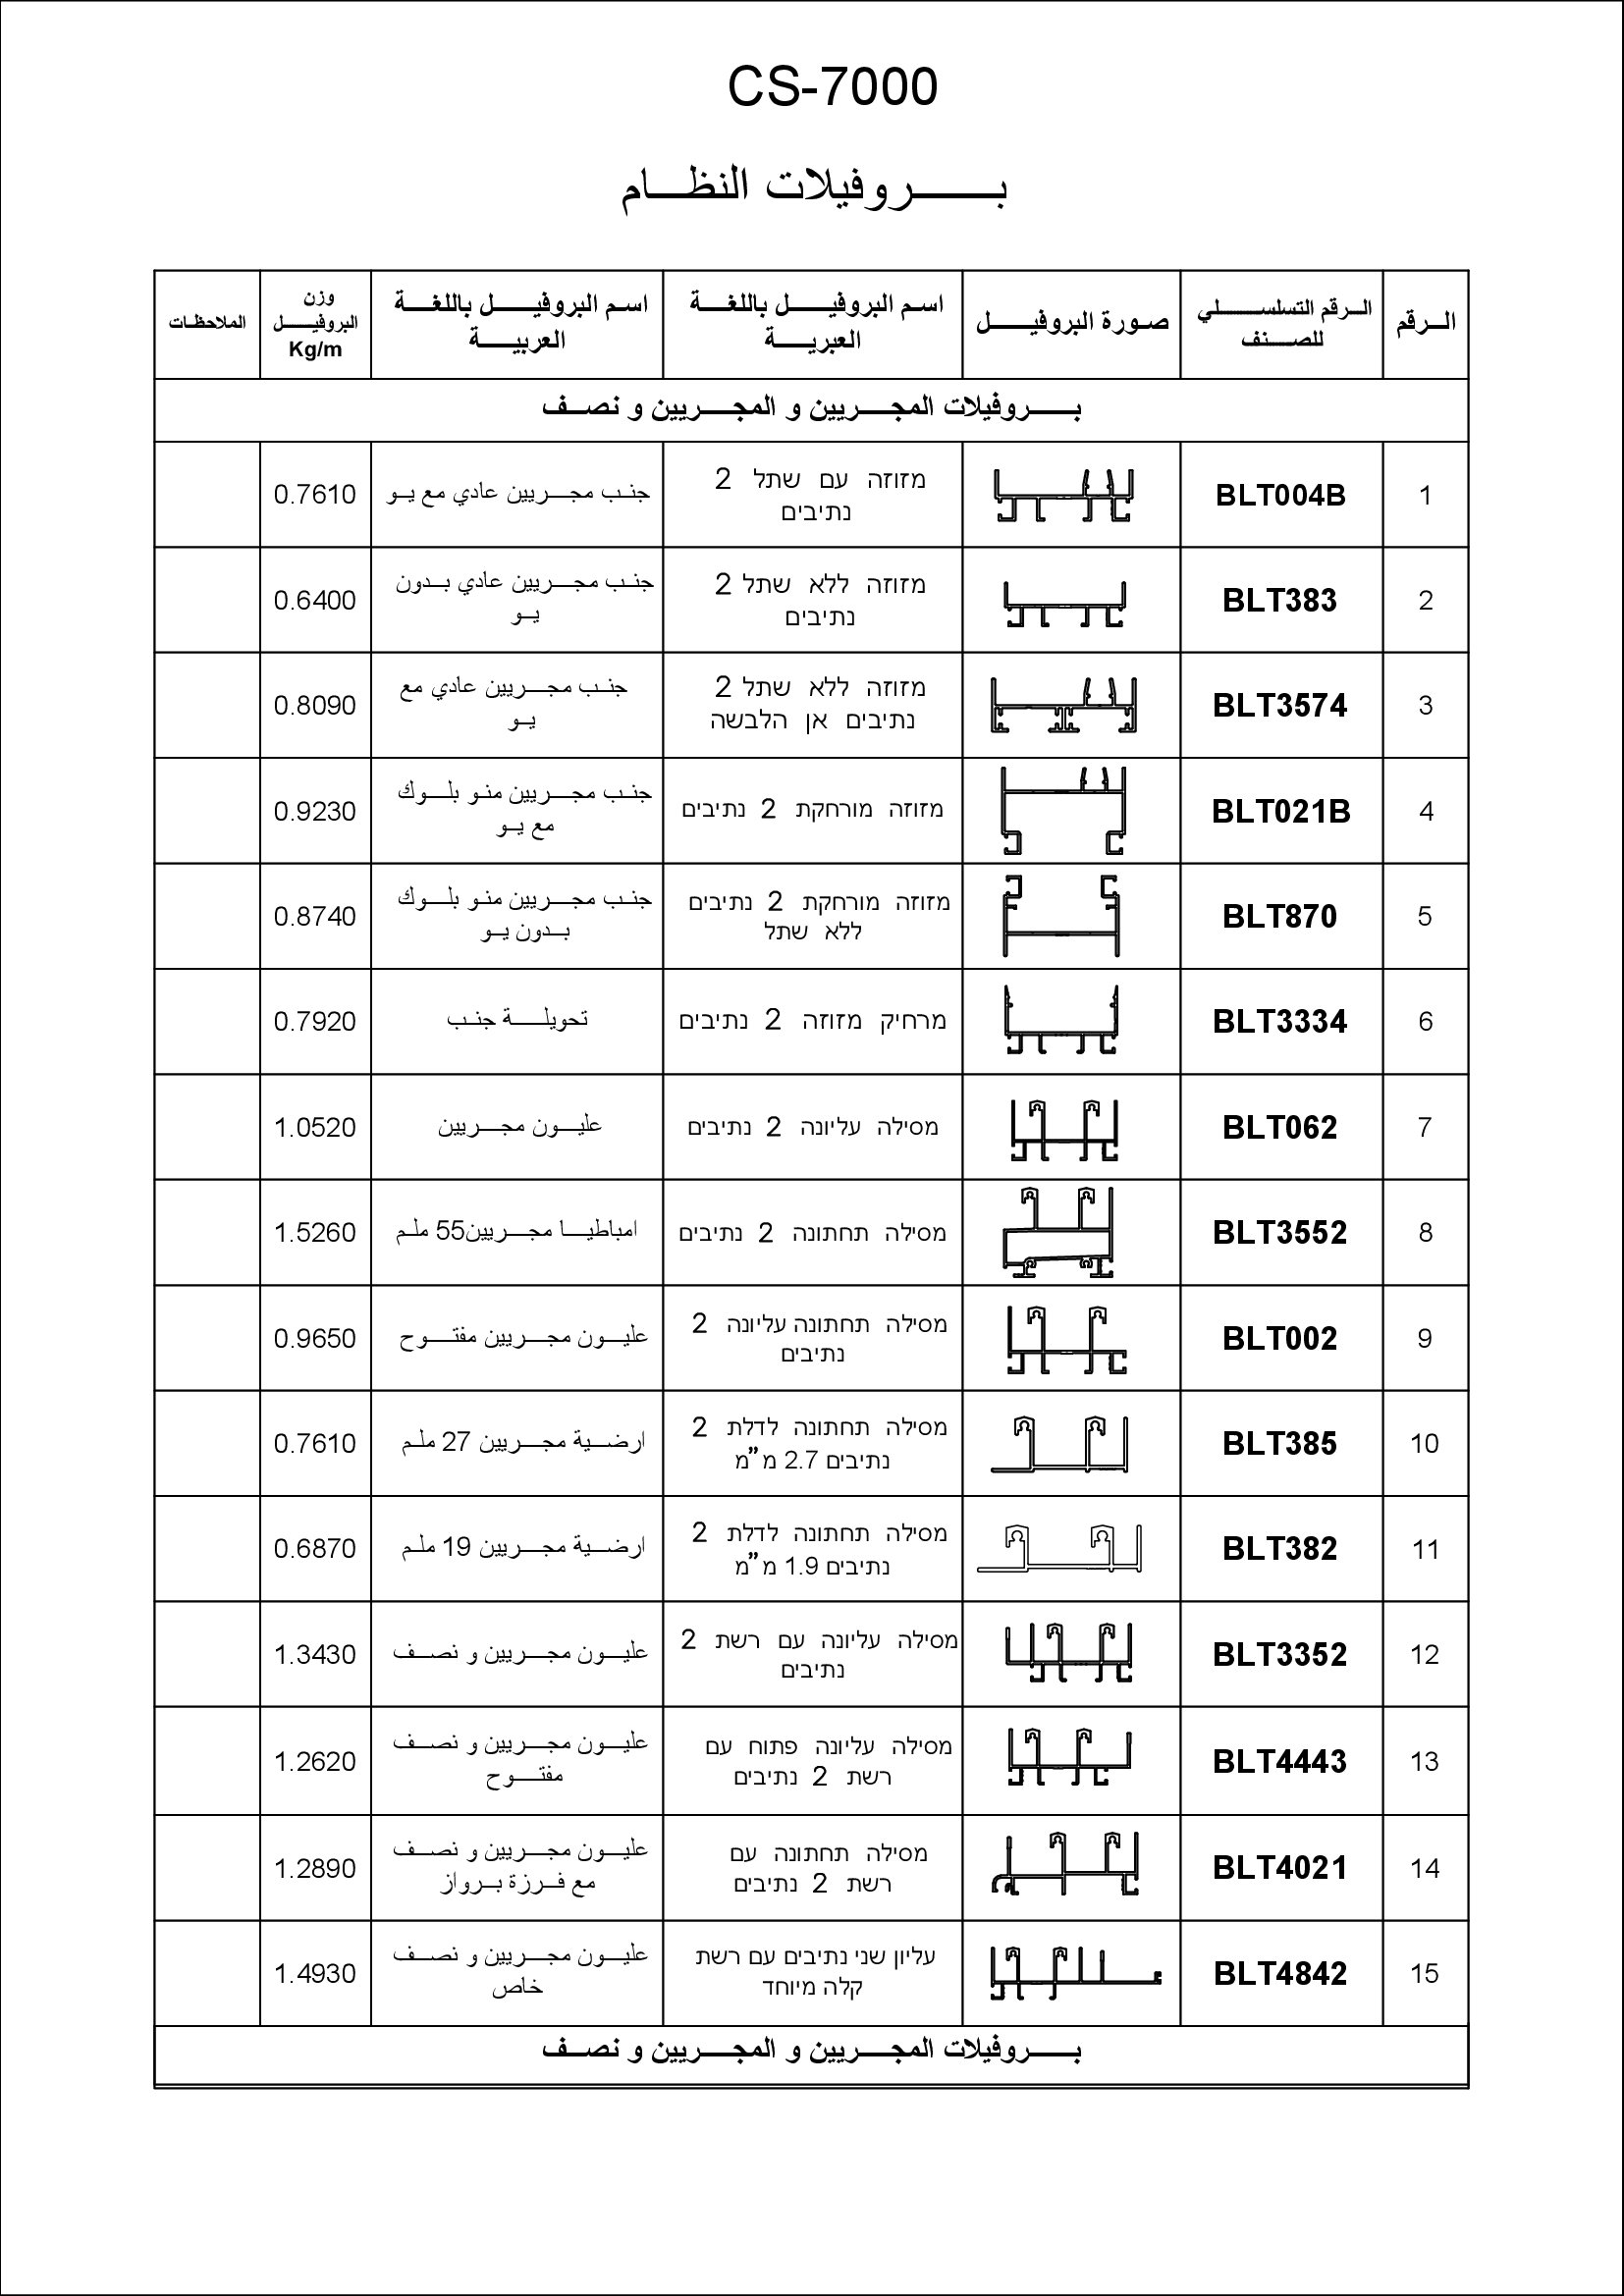 CS-7000
بروفيلات النظام
الرقم
الرقم التسلسلي
للصنف
صورة البروفيل
اسم البروفيل باللغة
العبرية
اسم البروفيل باللغة
العربية
وزن
البروفيل
Kg/m
الملاحظات
بروفيلات المجريين و المجريين و نصف
1
BLT004B
מזוזה עם שתל 2
נתיבים
جنب مجريين عادي مع يو
0.7610
2
BLT383
מזוזה ללא שתל 2
נתיבים
جنب مجريين عادي بدون
يو
0.6400
3
BLT3574
מזוזה ללא שתל 2
נתיבים אן הלבשה
جنب مجريين عادي مع
يو
0.8090
4
BLT021B
מזוזה מורחקת 2 נתיבים
جنب مجريين منو بلوك
مع يو
0.9230
5
BLT870
מזוזה מורחקת 2 נתיבים
ללא שתל
جنب مجريين منو بلوك
بدون يو
0.8740
6
BLT3334
מרחיק מזוזה 2 נתיבים
تحويلة جنب
0.7920
7
BLT062
מסילה עליונה 2 נתיבים
عليون مجريين
1.0520
8
BLT3552
מסילה תחתונה 2 נתיבים
امباطيا مجريين55 ملم
1.5260
9
BLT002
מסילה תחתונה עליונה 2
נתיבים
عليون مجريين مفتوح
0.9650
10
BLT385
מסילה תחתונה לדלת 2
נתיבים 2.7 מ”מ
ارضية مجريين 27 ملم
0.7610
11
BLT382
מסילה תחתונה לדלת 2
נתיבים 1.9 מ”מ
ارضية مجريين 19 ملم
0.6870
12
BLT3352
מסילה עליונה עם רשת 2
נתיבים
عليون مجريين و نصف
1.3430
13
BLT4443
מסילה עליונה פתוח עם
רשת 2 נתיבים
عليون مجريين و نصف
مفتوح
1.2620
14
BLT4021
מסילה תחתונה עם
רשת 2 נתיבים
عليون مجريين و نصف
مع فرزة برواز
1.2890
15
BLT4842
עליון שני נתיבים עם רשת
קלה מיוחד
عليون مجريين و نصف
خاص
1.4930
بروفيلات المجريين و المجريين و نصف